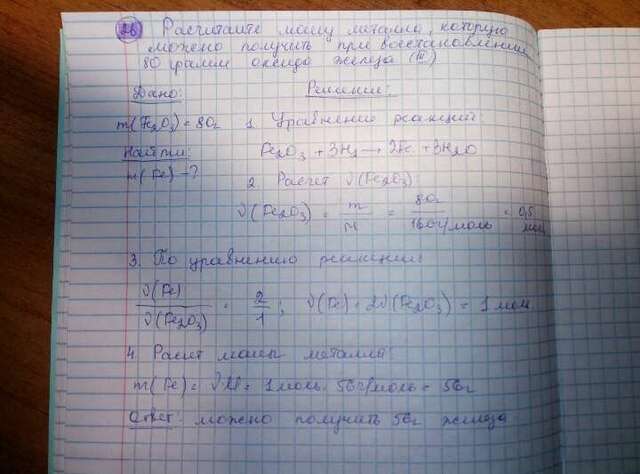 26 Расчитайте массу металла, которую
можно получить при восстановлении
80 грамм оксида железа (III)
Дано: Решение:
m(Fe₂O₃) = 80г 1. Уравнение реакции:
Найти: Fe₂O₃ + 3H₂ → 2Fe + 3H₂O
m(Fe) - ? 2. Расчет ν(Fe₂O₃):
ν(Fe₂O₃) = m/M = 80г/160г/моль = 0,5 моль
3. По уравнению реакции:
ν(Fe)/ν(Fe₂O₃) = 2/1; ν(Fe) = 2ν(Fe₂O₃) = 1 моль
4. Расчет массы металла:
m(Fe) = ν·M = 1 моль · 56г/моль = 56г
Ответ: можно получить 56г железа